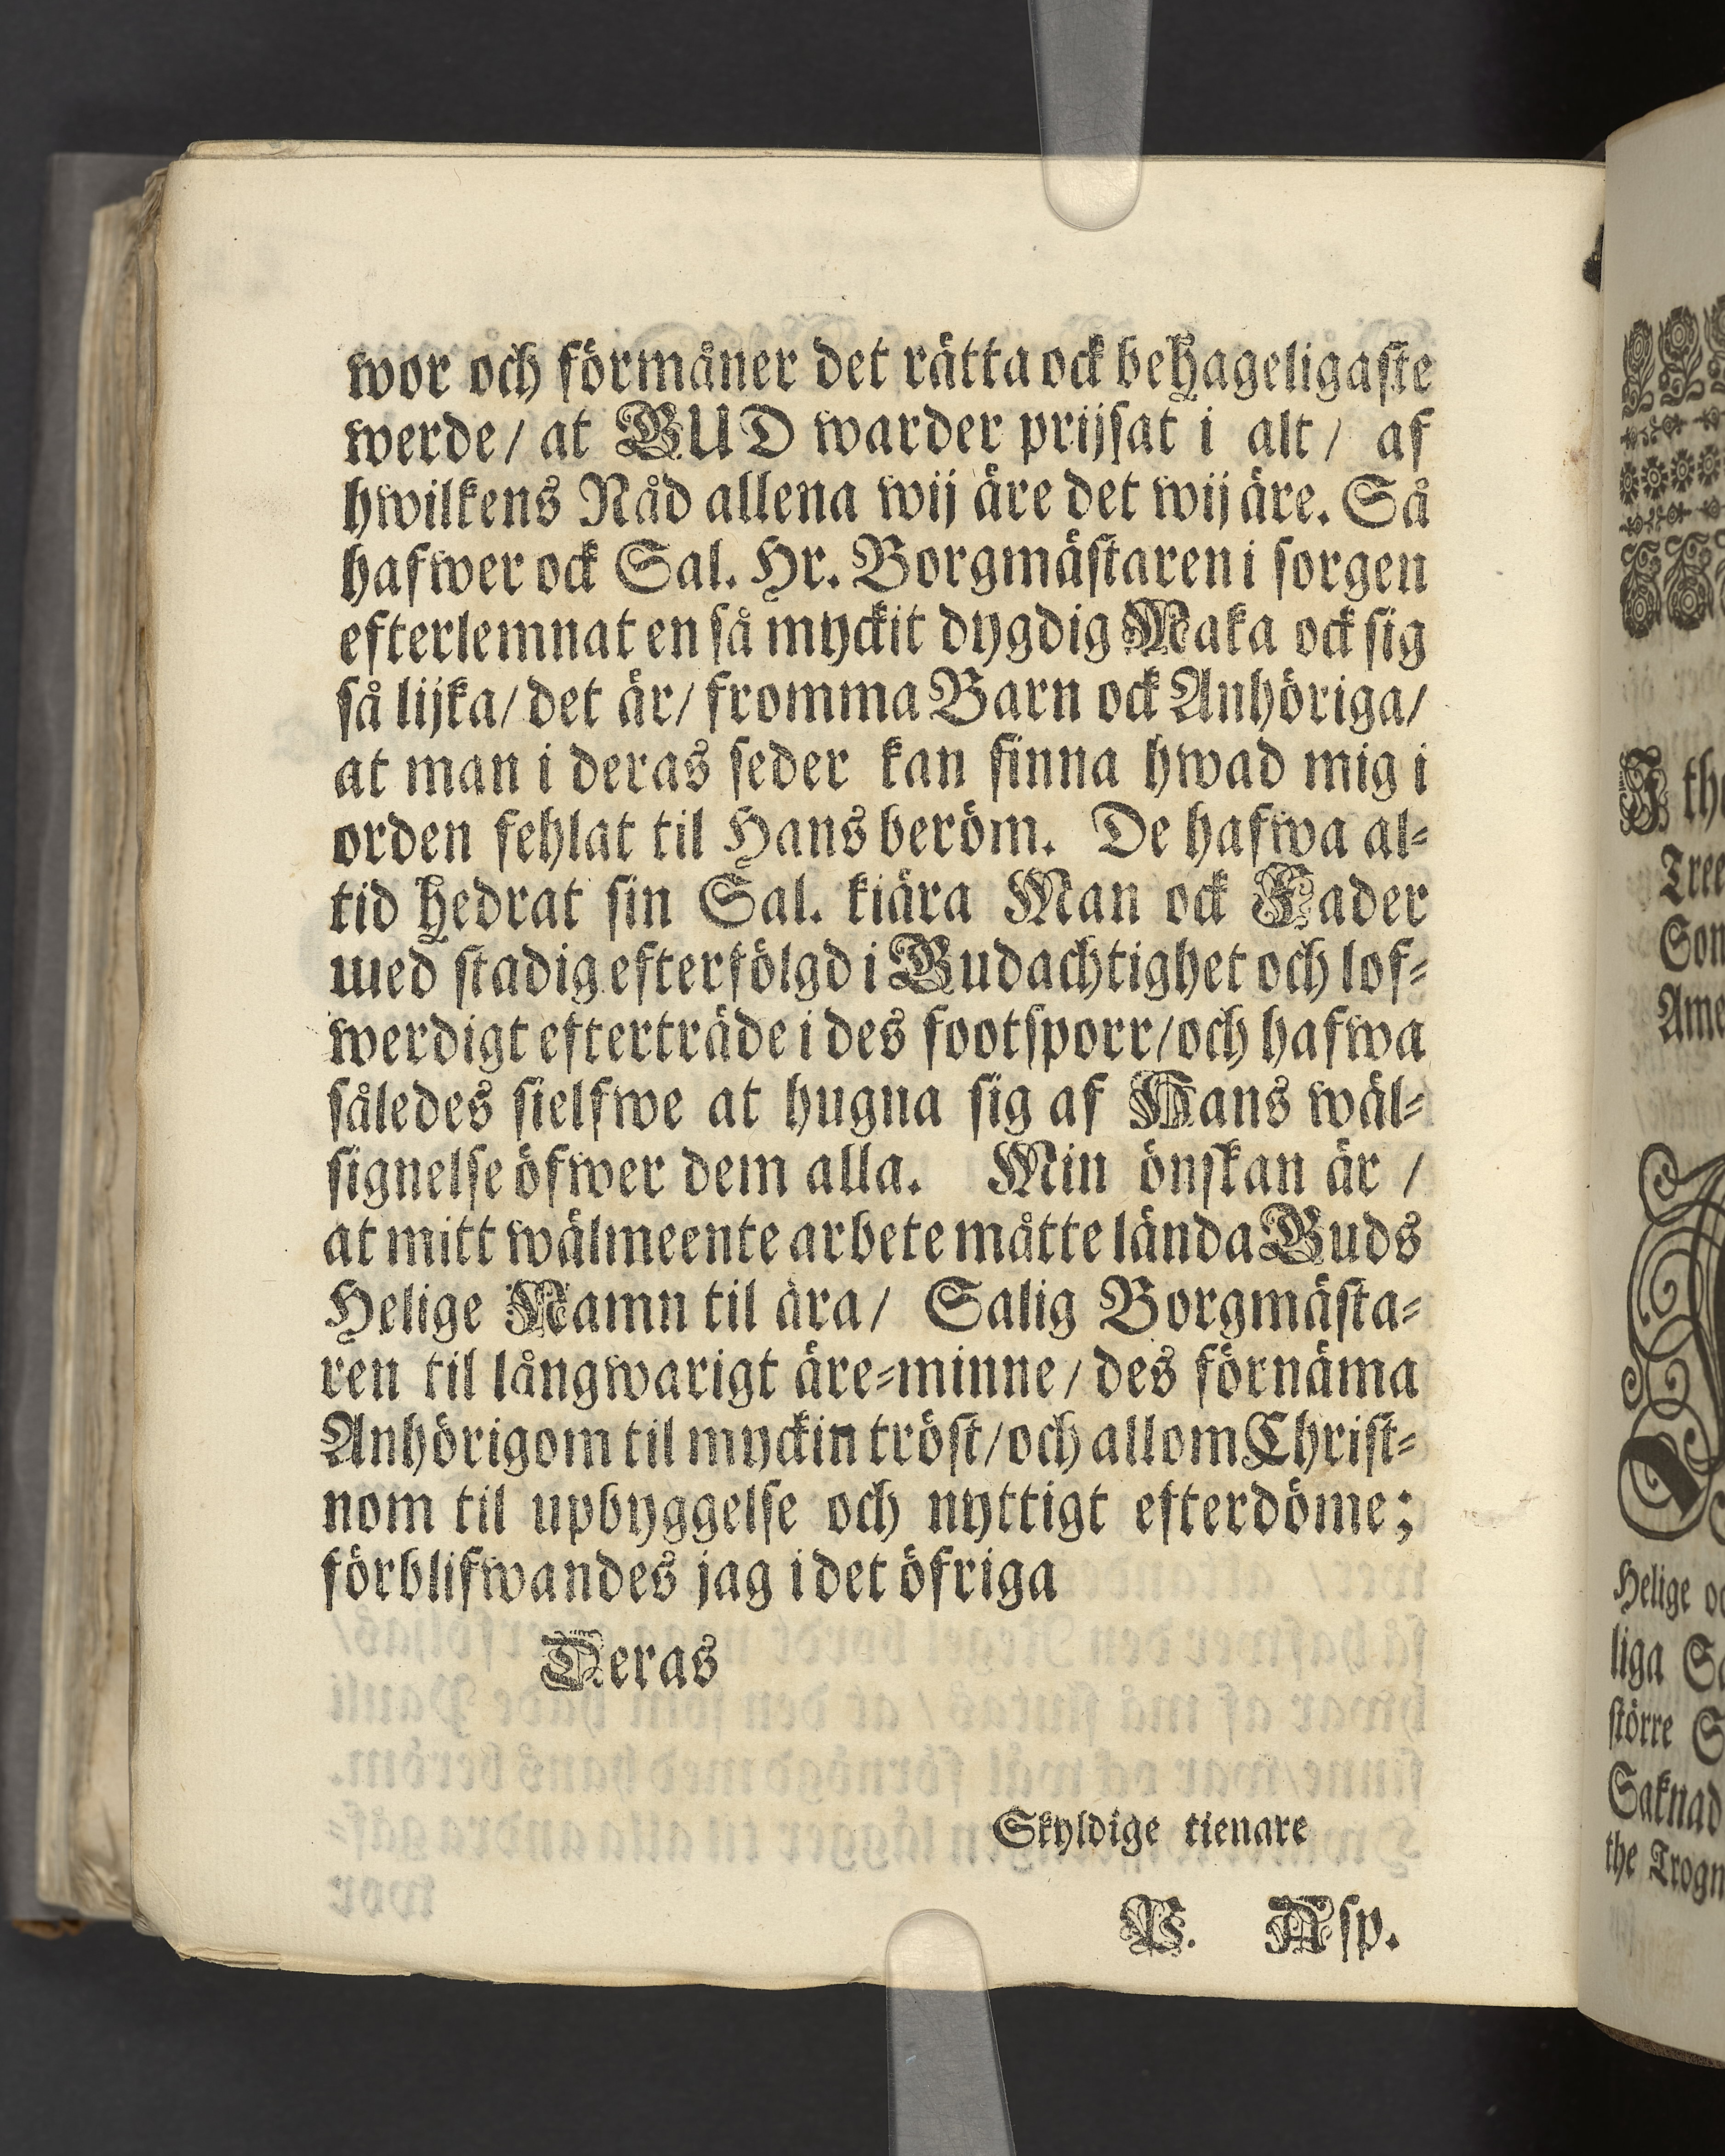 wor och förmåner det rätta ock beHageligaste
werde/ at GUD warder prijsat i alt/ af
hwilkens Nåd allena wij äre det wij äre. Så
hafwer ock Sal. Hr. Borgmästaren i sorgen
efterlemnat en så myckit dygdig Maka ock sig
så lijka/ det är/ fromma Barn ock Anhöriga/
at man i deras seder kan finna hwad mig i
orden fehlat til Hans beröm. De hafwa al-
tid Hedrat sin Sal. kiära Man ock Fader
med stadig efterfölgd i Gudachtighet och lof-
werdigt efterträde i des footsporr/ och hafwa
således sielfwe at hugna sig af Hans wäl-
signelse öfwer dem alla. Min önskan är /
at mitt wälmeente arbete måtte lända Guds
Helige Namn til ära/ Salig Borgmästa-
ren til långwarigt äre-minne/ des förnäma
Anhörigom til myckin tröst/ och allom Christ-
nom til upbyggelse och nyttigt efterdöme;
förblifwandes jag i det öfriga
Deras
Skyldige tienare
P. Asp.
I th
Tree
Son
Ame
Helige oc
liga Sa
större S
Saknad
the Trogn